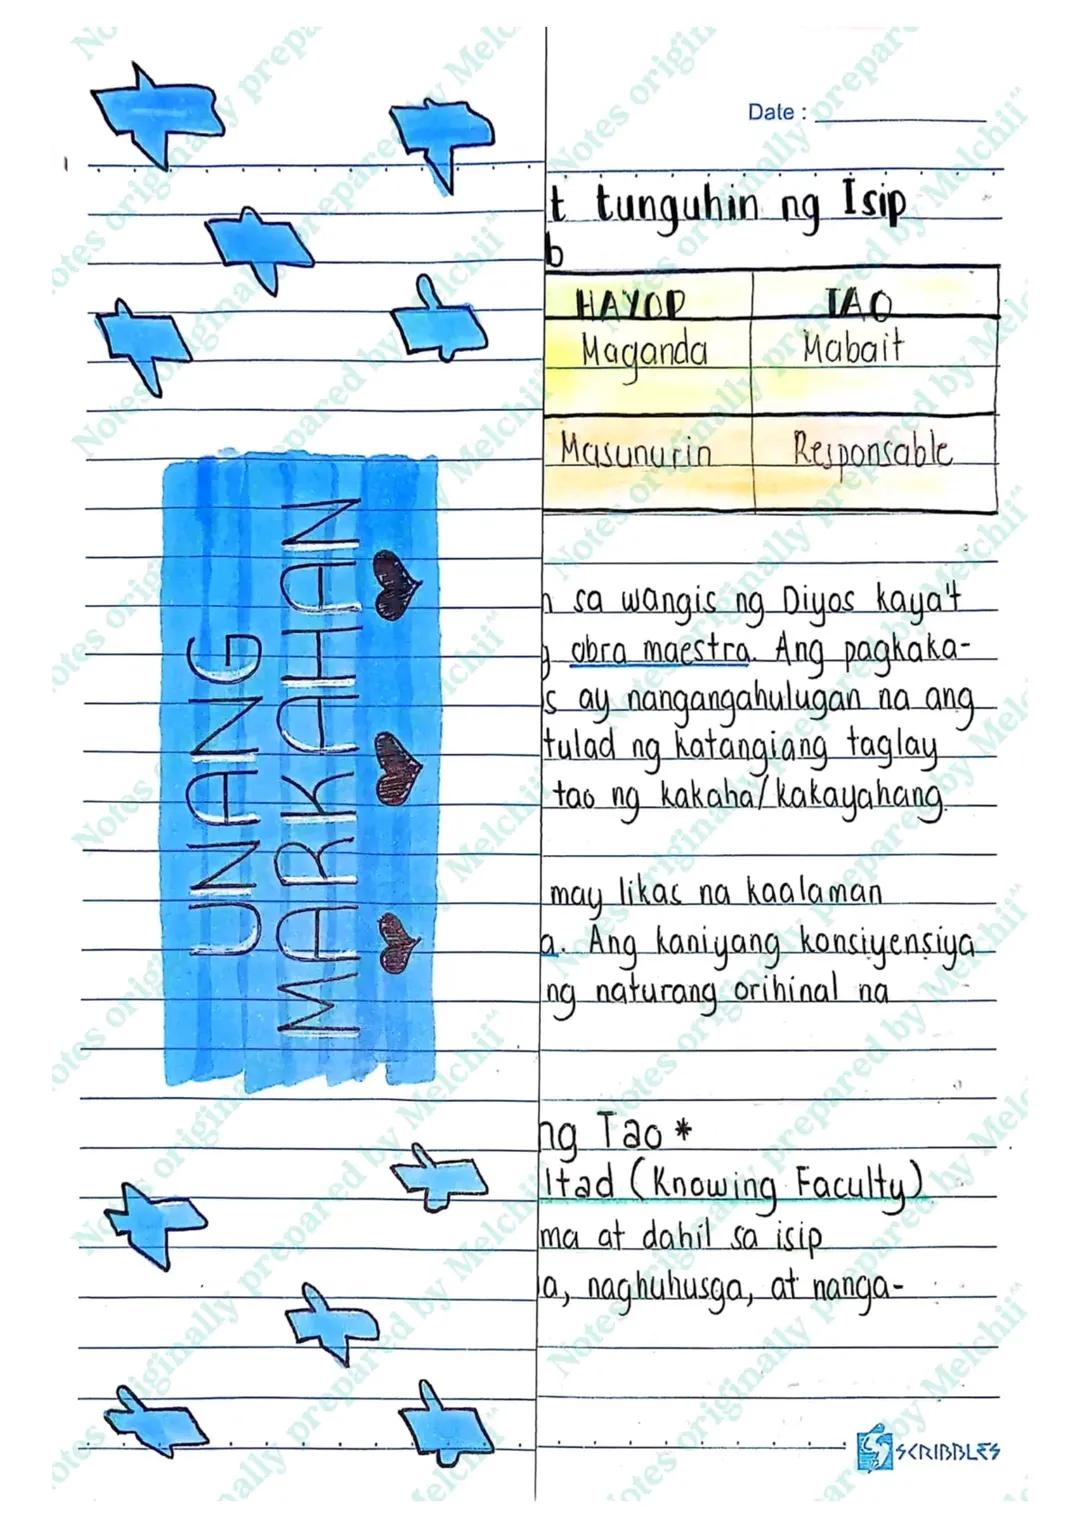 UNANG
MARKAHAN
Date :
t tunguhin ng Isip
b
HAYOP TAO
Maganda Mabait
Masunurin Responsable
n sa wangis ng Diyos kaya't
g obra maestra. Ang pagkaka-
s ay nangangahulugan na ang
tulad ng katangiang taglay
tao ng kakaha/kakayahang.
may likas na kaalaman
a. Ang kaniyang konsiyensiya
ng naturang orihinal na
ng Tao *
ltad (Knowing Faculty)
ma at dahil sa isip
a, naghuhusga, at nanga-
SCRIBBLES
Notes originally prepared by Melchii"